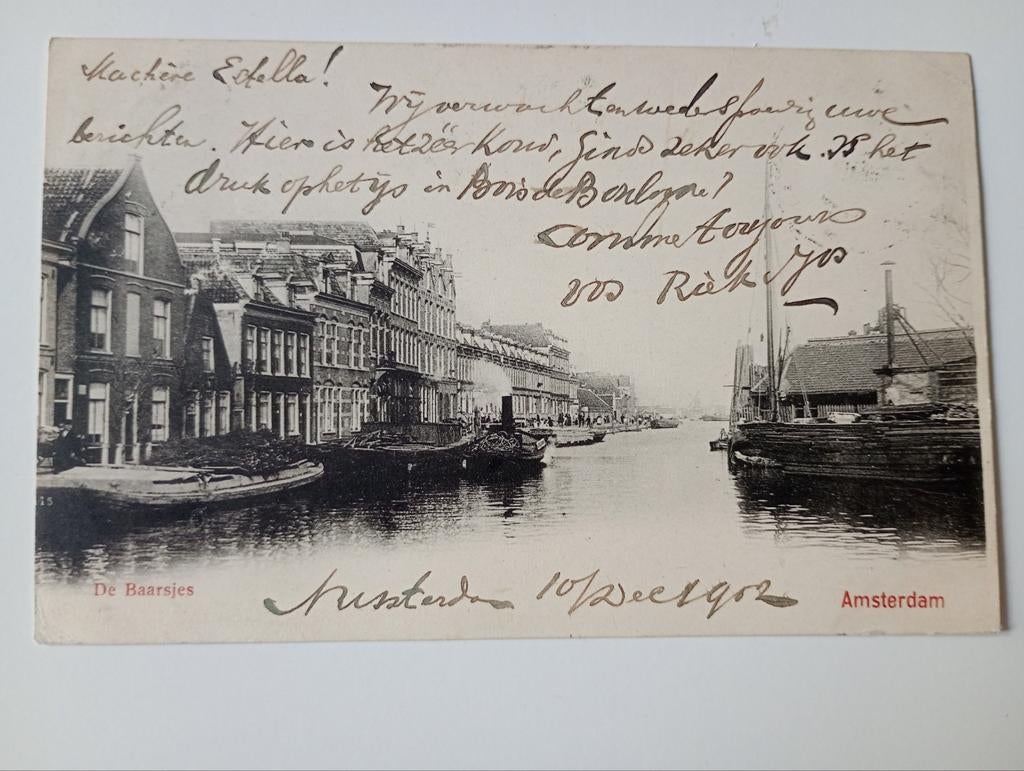 Machère Estella!
Wij verwachten wederspoedig uwe
berichten. Hier is het zéér koud, Ginds zeker ook. Is het
druk op het ijs in Bois de Boulogne?
comme toujours
vos Riek
15
De Baarsjes
Amsterdam 10/Dec 1902
Amsterdam